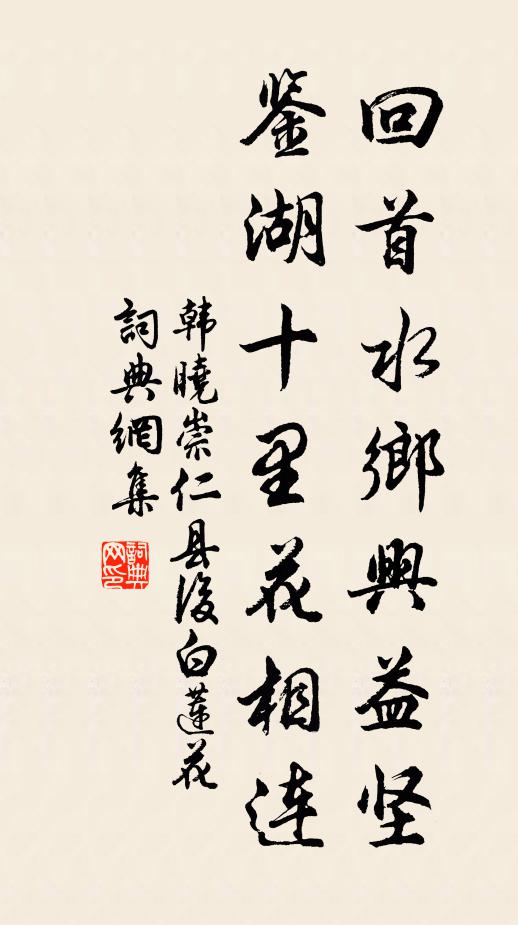 回首水鄉興益坚
鉴湖十里花相連
韩曉崇仁县後白蓮花
詞典網集
詞典网印